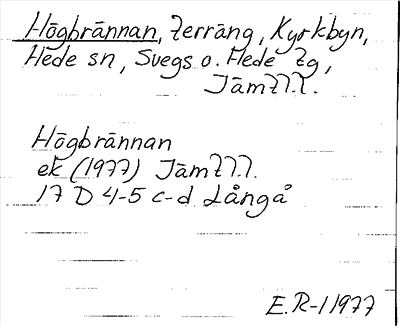 Högbrännan, Terräng, Kyrkbyn,
Hede sn, Svegs o. Hede tg,
Jämtl.l.
Högbrännan
ek (1977) Jämtl.l.
17 D 4-5 c-d Långå
E.R-l 1977